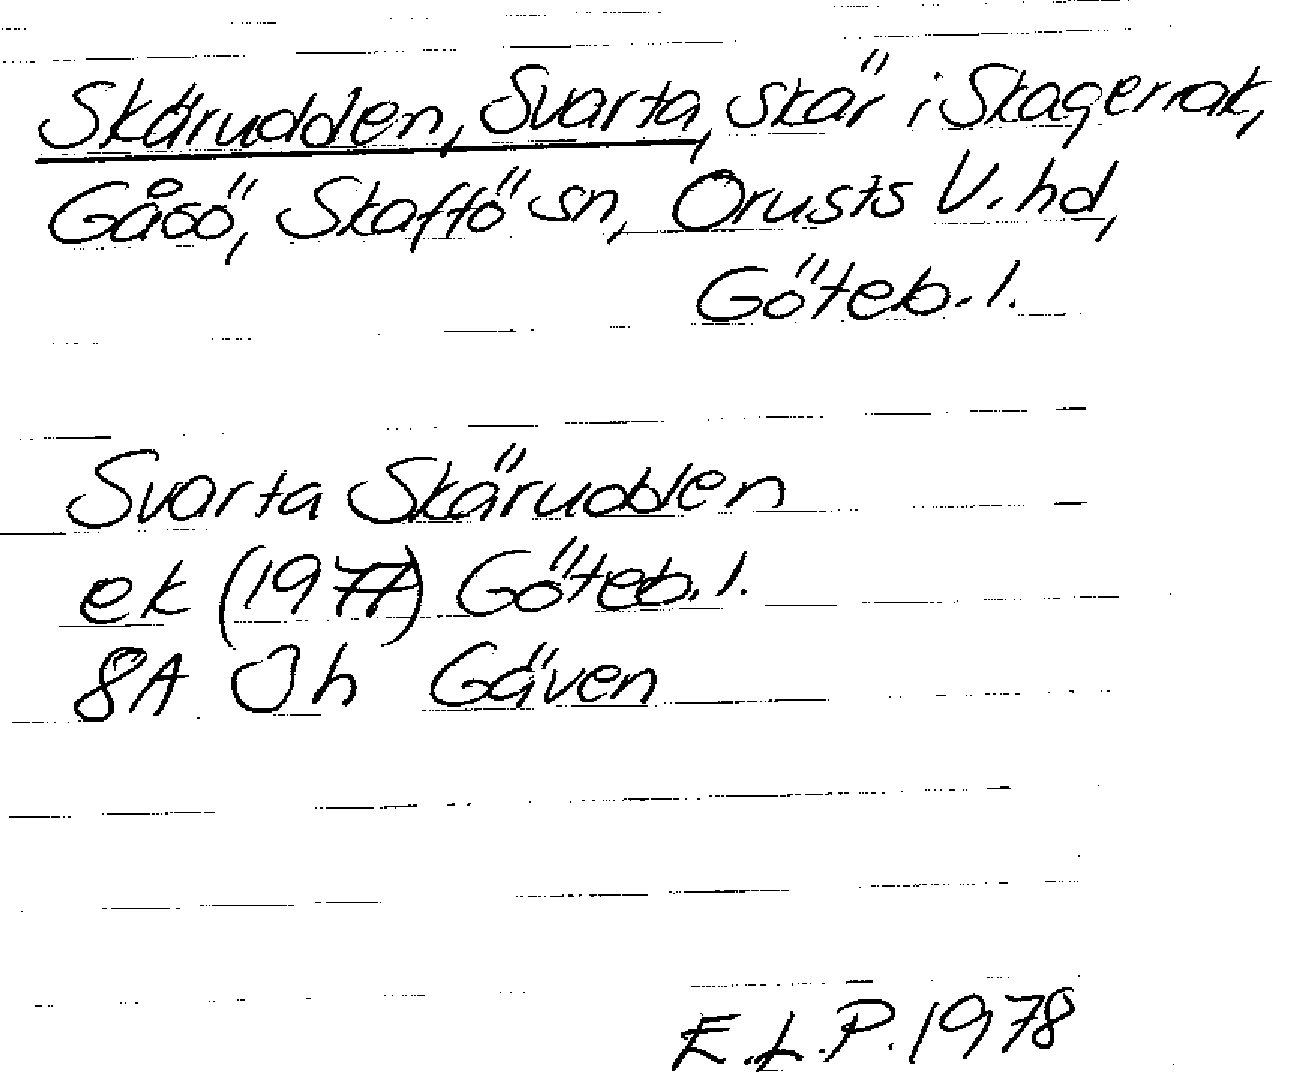 Skärudden, Svarta, skär i Skagerrak,
Gåsö, Skaftö sn, Orusts V. hd,
Göteb. l.
Svarta Skärudden
ek (1977) Göteb. l.
8A Jh Gäven
E.L.P. 1978